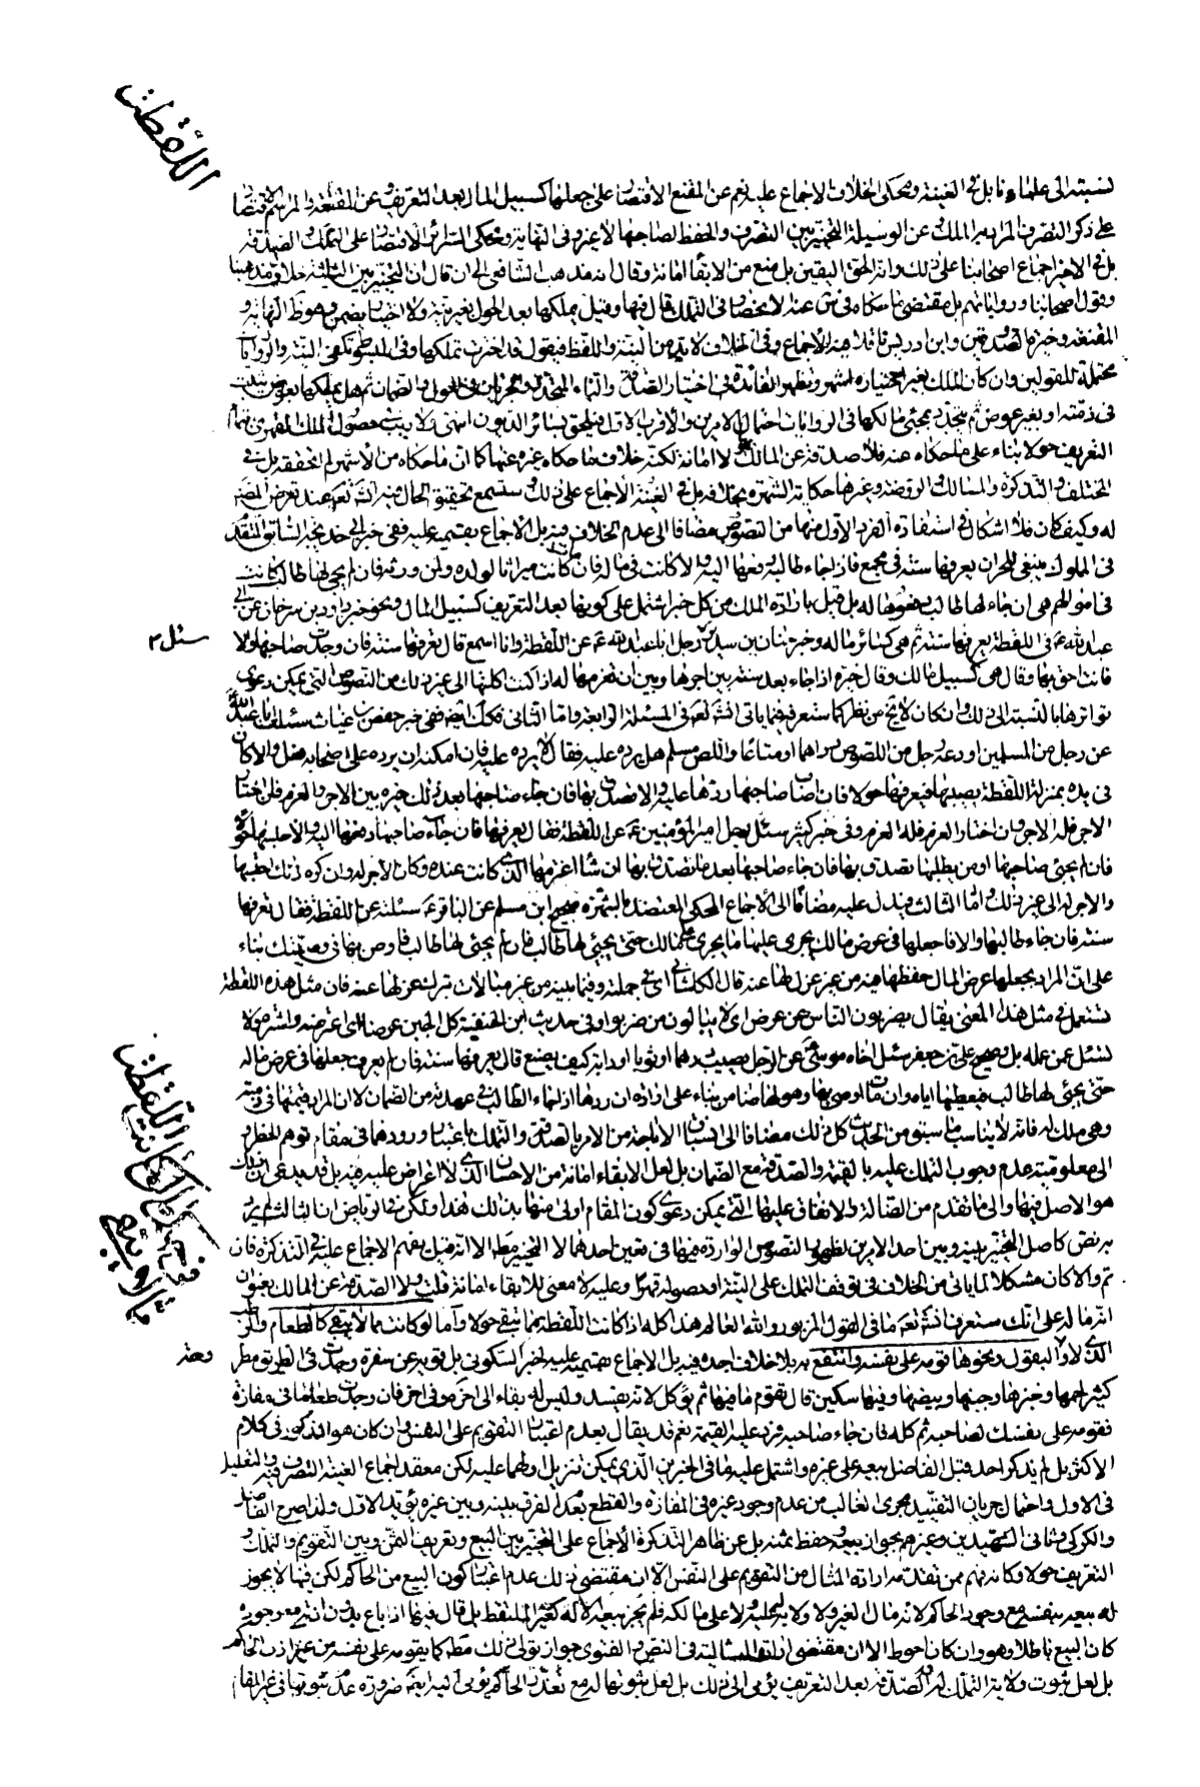 اللقطة
نسبته الى علمائنا بل في الغنية ومحكي الخلاف الاجماع عليه نعم عن المقنع الاقتصار على جعلها كسبيل المال بعد التعريف وعن المقنعة والمراسم الاقتصار
على ذكر التصرف المراد به الملك وعن الوسيلة التخيير بين التصرف والحفظ لصاحبها لا غير وفي النهاية ومحكي السرائر الاقتصار على التملك والصدقة
بل في الاخير اجماع اصحابنا على ذلك وانه الحق اليقين بل منع من الابقاء امانة وقال انه مذهب الشافعي الى ان قال ان التخيير بين الثلثة خلاف مذهبنا
وقول اصحابنا ورواياتهم بل مقتضى ما حكاه في عنه الانحصار في التملك قال فيها وقيل يملكها بعد الحول بغير نية ولا اختيار ويضمن وهو ظ النهاية و
المقنعة وخيرة الصدوقين وابن ادريس ناقلا فيه الاجماع وفي الخلاف لا بد من النية واللفظ فيقول قد اخترت تملكها وفي المبسوط تكفي النية والروايات
محتملة للقولين وان كان الملك بغير اختياره اشهر وتظهر الفائدة في اختيار الصدقة والنماء المتجدد والجريان في الحول والضمان ثم هل يملكها بعوض يثبت
في ذمته او بغير عوض ثم يتجدد بمجيء مالكها في الروايات احتمال الامرين والاقرب الاول فيلحق بسائر الديون انتهى ولا ريب حصول الملك القهري بتمام
التعريف حولا بناء على ما حكاه عنه فلا صدقة عن المالك ولا امانة لكنه خلاف ما حكاه غيره عنها كما ان ما حكاه من الاشهر لم نتحققه بل في
المختلف والتذكرة والمسالك والروضة وغيرها حكاية الشهرة بخلافه بل في الغنية الاجماع على ذلك وستسمع تحقيق الحال فيه انش تعم عند تعرض المصنف
له وكيف كان فلا اشكال في استفادة الفرد الاول منها من النصوص مضافا الى عدم الخلاف فيه بل الاجماع بقسميه عليه ففي خبر ابي خديجة السابق المتقدم
في المملوك ينبغي للحر ان يعرفها سنة في مجمع فان جاء طالبها دفعها اليه والا كانت في ماله فان مات كانت ميراثا لولده ولمن ورثه فان لم يجئ لها طالب كانت
في اموالهم هي ان جاء لها طالب دفعوها له بل قيل بارادة الملك من كل خبر اشتمل على كونها بعد التعريف كسبيل المال ونحو خبر داود بن سرحان عن ابي
عبد الله ع في اللقطة يعرفها سنة ثم هي كسائر ماله وخبر حنان بن سدير رجل ابا عبد الله ع عن اللقطة وانا اسمع قال تعرفها سنة فان وجدت صاحبها والا
سئل ٢
فانت احق بها وقال هي كسبيل مالك وقال خيره اذا جاء بعد سنة بين اجرها وبين ان تغرمها له اذا كنت اكلتها الى غير ذلك من النصوص التي يمكن دعوى
تواترها بالنسبة الى ذلك وان كان لا يخ من نظر كما ستعرفه فيما ياتي انش تعم في المسئلة الرابعة واما الثاني فكك ايضا ففي خبر حفص بن غياث سئلت ابا عبد الله
عن رجل من المسلمين اودعه رجل من اللصوص دراهما او متاعا واللص مسلم هل يرده عليه فقال لا يرده عليه فان امكنه ان يرده على اصحابه فعل والا كان
في يده بمنزلة اللقطة يصيبها فيعرفها حولا فان اصاب صاحبها ردها عليه والا تصدق بها فان جاء صاحبها بعد ذلك خيره بين الاجر والغرم فان اختار
الاجر فله الاجر وان اختار الغرم فله الغرم وفي خبر كثير سئل رجل امير المؤمنين ع عن اللقطة فقال يعرفها فان جاء صاحبها دفعها اليه والا حبسها حولا
فان لم يجئ صاحبها او من يطلبها تصدق بها فان جاء صاحبها بعد ما تصدق بها ان شاء اغترمها الذي كانت عنده وكان الاجر له وان كره ذلك احتسبها
والاجر له الى غير ذلك واما الثالث فيدل عليه مضافا الى الاجماع المحكي المعتضد بالشهرة صحيح ابن مسلم عن الباقر ع سئلته عن اللقطة فقال تعرفها
سنة فان جاء طالبها والا فاجعلها في عرض مالك يجري عليها ما يجري على مالك حتى يجيئ لها طالب فان لم يجئ لها طالب فاوص بها في وصيتك بناء
على ان المراد بجعلها عرض المال حفظها فيه من غير عزل لها عنه قال الكاشاني اي في جملته وفيما بينه من غير مبالات بترك عزلها عنه فان مثل هذه اللفظة
تستعمل في مثل هذا المعنى يقال يضربون الناس عن عرض اي لا يبالون من ضربوا وفي حديث ابن الحنفية كل الجبن عرضا اي اعترضه واشتره ولا
تسئل عن عمله بل وصحيح علي بن جعفر سئل اخاه موسى ع عن الرجل يصيب درهما او ثوبا او دابة كيف يصنع قال يعرفها سنة فان لم يعرف جعلها في عرض ماله
حتى يجيئ لها طالب فيعطيها اياه وان مات اوصى بها وهو لها ضامن بناء على ارادة ان ردها اذا جاء الطالب في عهدته من الضمان لا ان المراد قيمتها في ذمته
وهي ملك له فانه لا يناسب ما سبق من الحديث كل ذلك مضافا الى انسباق الاباحة من الامر بالصدقة والتملك باعتبار ورودهما في مقام توهم الحظر و
الى معلومية عدم وجوب التملك عليه بالقيمة والصدقة مع الضمان بل لعل الابقاء امانة من الاحسان الذي لا اعراض عليه فيه بل قد يدعى ان ذلك
هو الاصل فيها والى ما تقدم من الضالة والاتفاق عليها التي يمكن دعوى كون المقام اولى منها بذلك هذا ولكن في الرياض ان الثالث لم ير
به نص كاصل التخيير بينه وبين احد الامرين لظهور النصوص الواردة فيها في تعين احدهما لا التخيير مط الا انه قيل يفهم الاجماع عليه في التذكرة فان
تم والا كان مشكلا لما ياتي من الخلاف في توقف التملك على النية او حصوله قهرا وعليه لا معنى للابقاء امانة قلت ولا الصدقة عن المالك بعنوان
انه ماله على انك ستعرف انش تعم ما في القول المزبور والله العالم هذا كله اذا كانت اللقطة مما تبقى حولا واما لو كانت مما لا يبقى كالطعام والرطب
فيما لو كانت اللقطة مما لا يبقى
الذي لا والبقول ونحوها قومه على نفسه وانتفع به بلا خلاف اجده فيه بل الاجماع بقسميه عليه لخبر السكوني بل قريب عن سفرة وجدت في الطريق مطروحة
كثير لحمها وخبزها وجبنها وبيضها وفيها سكين قال يقوم ما فيها ثم يؤكل لانه يفسد وليس له بقاء الى اخره وفي اخر فان وجدت طعاما في مفازة
فقومه على نفسك لصاحبه ثم كله فان جاء صاحبه فرد عليه القيمة نعم قد يقال بعدم اعتبار التقويم على النفس وان كان هو المذكور في كلام
الاكثر بل لم يذكر احد قبل الفاضل بيعه على غيره واشتمل عليه ما في الخبرين الذي يمكن تنزيل اولهما عليه لكن معقد اجماع الغنية التصرف فيه والتعليل
في الاول واحتمال جريان التقييد مجرى الغالب من عدم وجود غيره في المفازة والقطع بعدم الفرق بينه وبين غيره يؤيد الاول ولذا صرح الفاضل
والكركي وثاني الشهيدين وغيرهم بجواز بيعه وحفظ ثمنه بل عن ظاهر التذكرة الاجماع على التخيير بين البيع وتعريف الثمن وبين التقويم والتملك و
التعريف حولا وكانه فهم ممن تقدمه ارادة المثال من التقويم على النفس الا ان مقتضى ذلك عدم اعتبار كون البيع من الحاكم لكن فيها لا يجوز
له بيعه بنفسه مع وجود الحاكم لانه مال الغير ولا ولاية له عليه ولا على مالكه فلم يجز بيعه له كغير الملتقط بل قال فيها اذا باع بدون اذنه مع وجوده
كان البيع باطلا وهو وان كان احوط الا ان مقتضى ارادة المثالية في النص والفتوى جواز تولي ذلك مط كما يقومه على نفسه من غير اذن الحاكم
بل لعل ثبوت ولاية التملك له والصدقة بعد التعريف يؤمي الى ذلك بل لعل ثبوتها له مع تعذر الحاكم يؤمي اليه ايضا ضرورة عدم ثبوتها في غير المقام